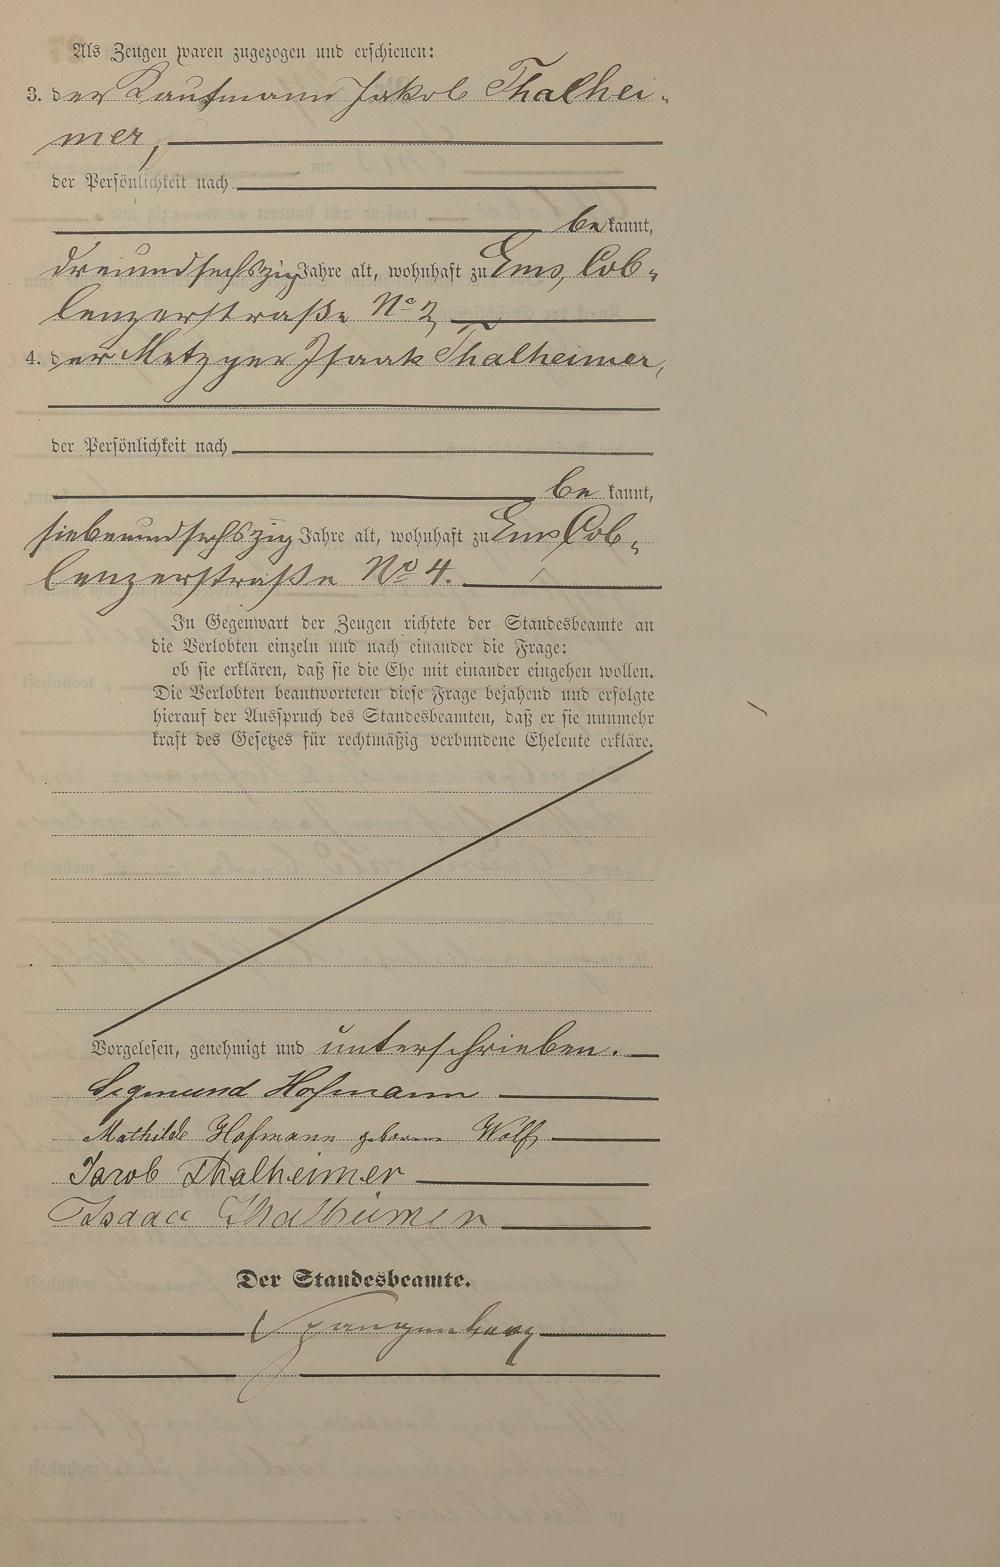 Als Zeugen waren zugezogen und erschienen:
3. der Kaufmann Jakob Thalhei-
mer,
der Persönlichkeit nach
be kannt,
dreiundsechszig Jahre alt, wohnhaft zu Ems, Cob-
lenzerstraße No 2,
4. der Metzger Isaak Thalheimer,
der Persönlichkeit nach
be kannt,
siebenundsechszig Jahre alt, wohnhaft zu Ems Cob-
lenzerstraße No 4.
In Gegenwart der Zeugen richtete der Standesbeamte an
die Verlobten einzeln und nach einander die Frage:
ob sie erklären, daß sie die Ehe mit einander eingehen wollen.
Die Verlobten beantworteten diese Frage bejahend und erfolgte
hierauf der Ausspruch des Standesbeamten, daß er sie nunmehr
kraft des Gesetzes für rechtmäßig verbundene Eheleute erkläre.
Vorgelesen, genehmigt und unterschrieben.
Sigmund Hofmann
Mathilde Hofmann geborene Wolf
Jacob Thalheimer
Isaac Thalheimer
Der Standesbeamte.
Spangenberg